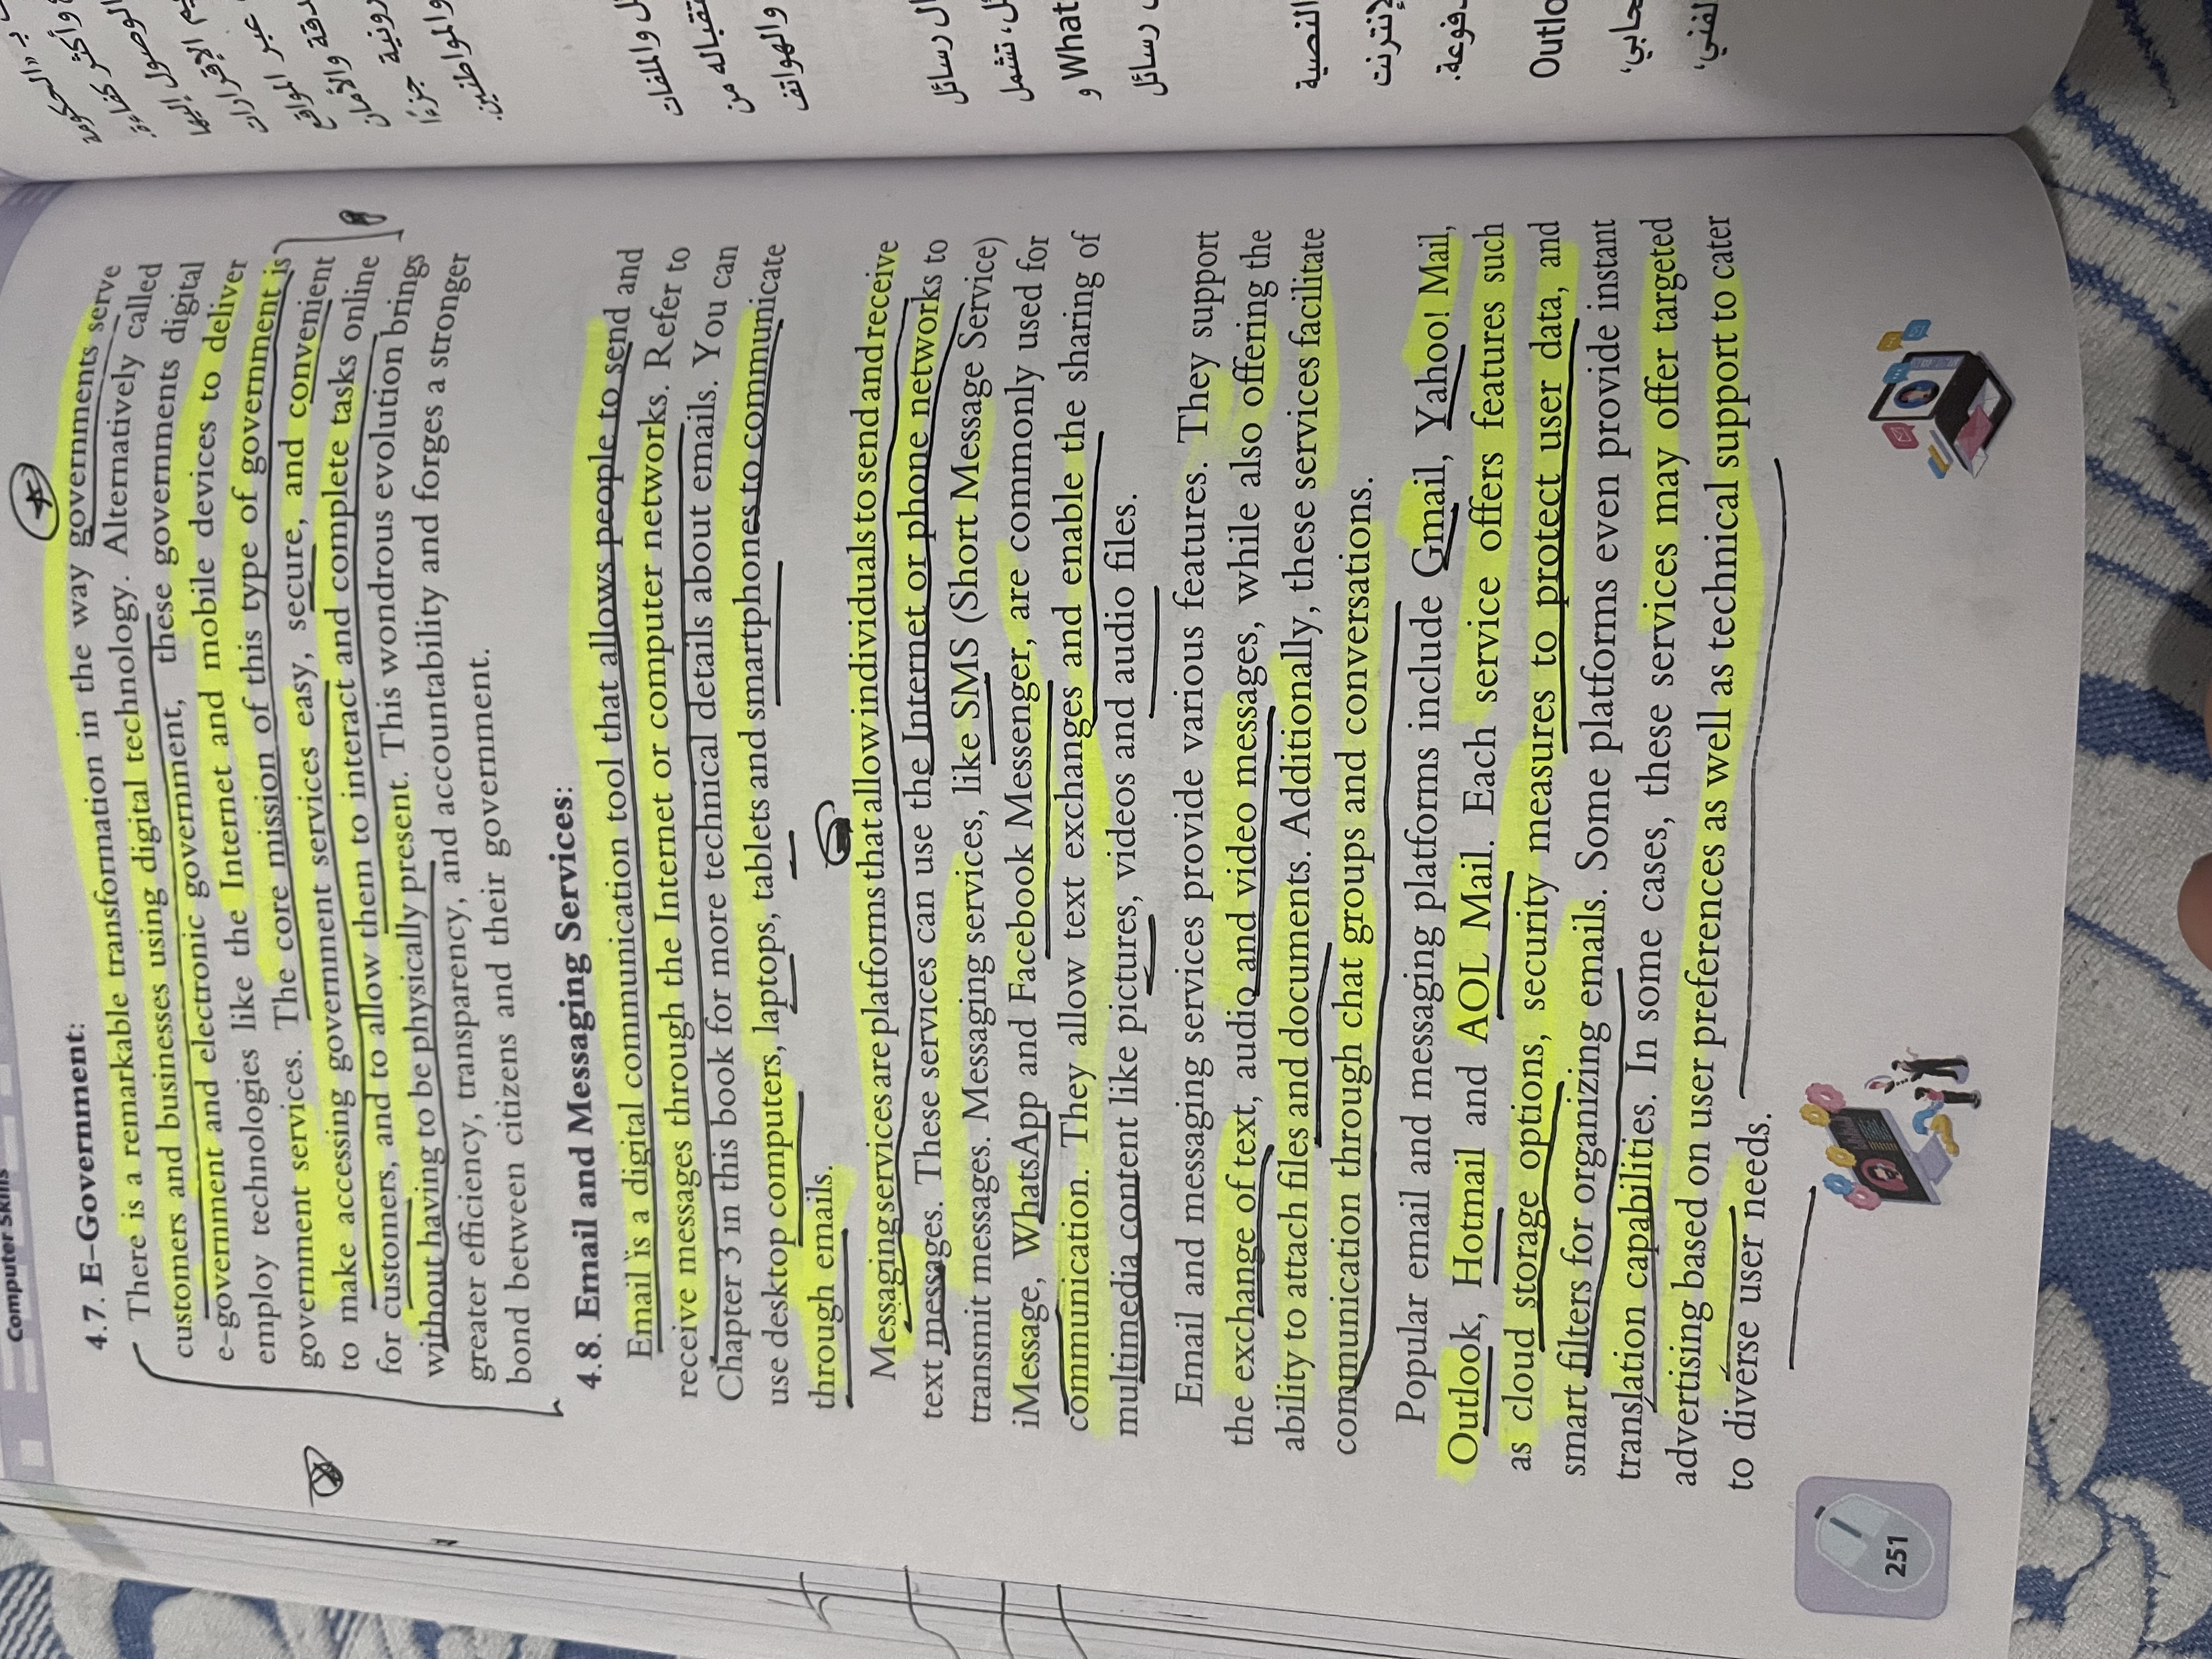 Computer Skills
4.7. E-Government:
There is a remarkable transformation in the way governments serve
customers and businesses using digital technology. Alternatively called
e-government and electronic government, these governments digital
employ technologies like the Internet and mobile devices to deliver
government services. The core mission of this type of government is
to make accessing government services easy, secure, and convenient
for customers, and to allow them to interact and complete tasks online
without having to be physically present. This wondrous evolution brings
greater efficiency, transparency, and accountability and forges a stronger
bond between citizens and their government.
4.8. Email and Messaging Services:
Email is a digital communication tool that allows people to send and
receive messages through the Internet or computer networks. Refer to
Chapter 3 in this book for more technical details about emails. You can
use desktop computers, laptops, tablets and smartphones to communicate
through emails.
Messaging services are platforms that allow individuals to send and receive
text messages. These services can use the Internet or phone networks to
transmit messages. Messaging services, like SMS (Short Message Service)
iMessage, WhatsApp and Facebook Messenger, are commonly used for
communication. They allow text exchanges and enable the sharing of
multimedia content like pictures, videos and audio files.
Email and messaging services provide various features. They support
the exchange of text, audio and video messages, while also offering the
ability to attach files and documents. Additionally, these services facilitate
communication through chat groups and conversations.
Popular email and messaging platforms include Gmail, Yahoo! Mail,
Outlook, Hotmail and AOL Mail. Each service offers features such
as cloud storage options, security measures to protect user data, and
smart filters for organizing emails. Some platforms even provide instant
translation capabilities. In some cases, these services may offer targeted
advertising based on user preferences as well as technical support to cater
to diverse user needs.
251
وأكثر كفاءة
عبر المواقع
دقة والأمان
والمواطنين.
ل والملفات
والهواتف
ال رسائل
و What
رسائل
النصية
Outlo